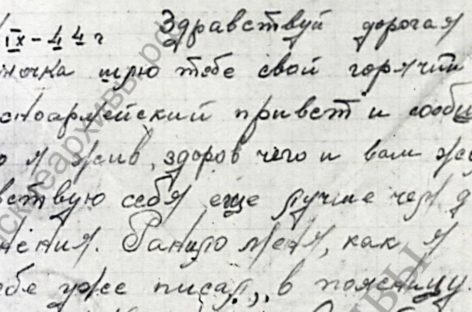 IX-44г Здравствуй дорогая
ночка шлю тебе свой горячий
сноармейский привет и сообщ
о я жив, здоров чего и вам же
вствую себя еще лучше чем д
нения. Ранило меня, как я
ебе уже писал, в поясницу.